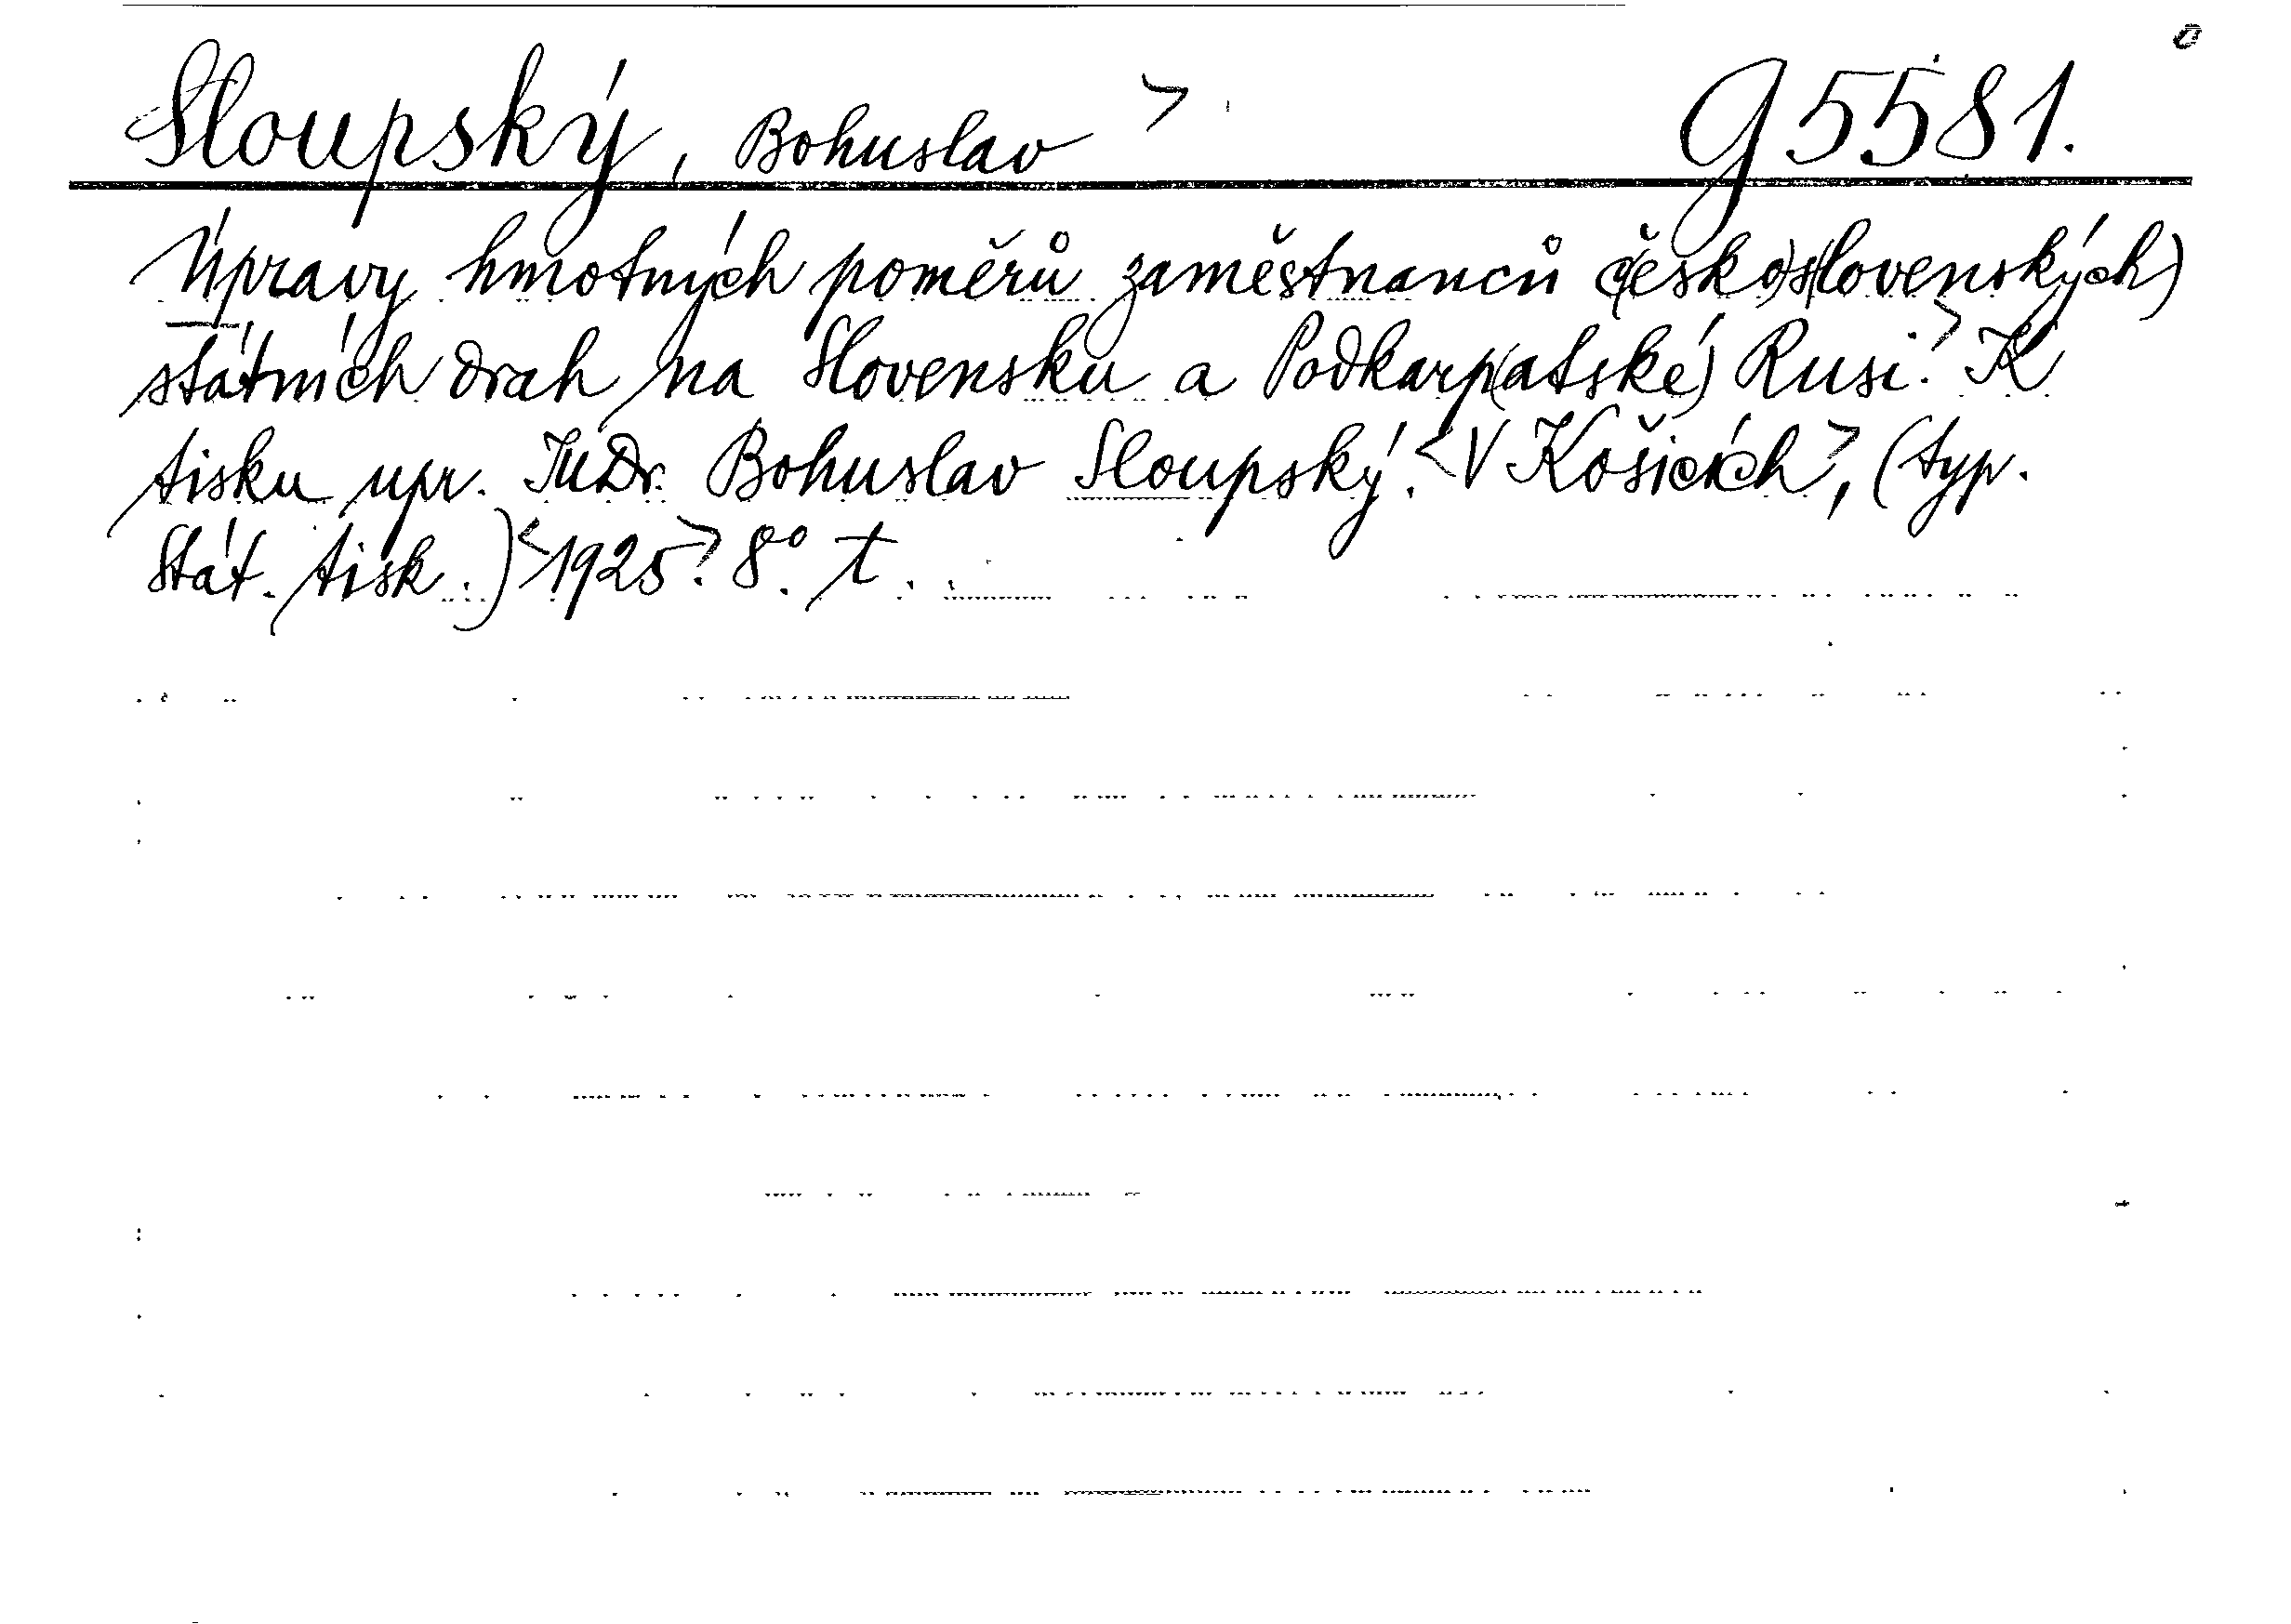 Sloupský, Bohuslav > g 5581.
Úpravy hmotných poměrů zaměstnanců č(esko)s(lovenských)
státních drah na Slovensku a Podkarp(atské) Rusi.> K
tisku upr. JUDr. Bohuslav Sloupský. <V Košicích>, (typ.
Stát. tisk.) <1925>. 8°. t.